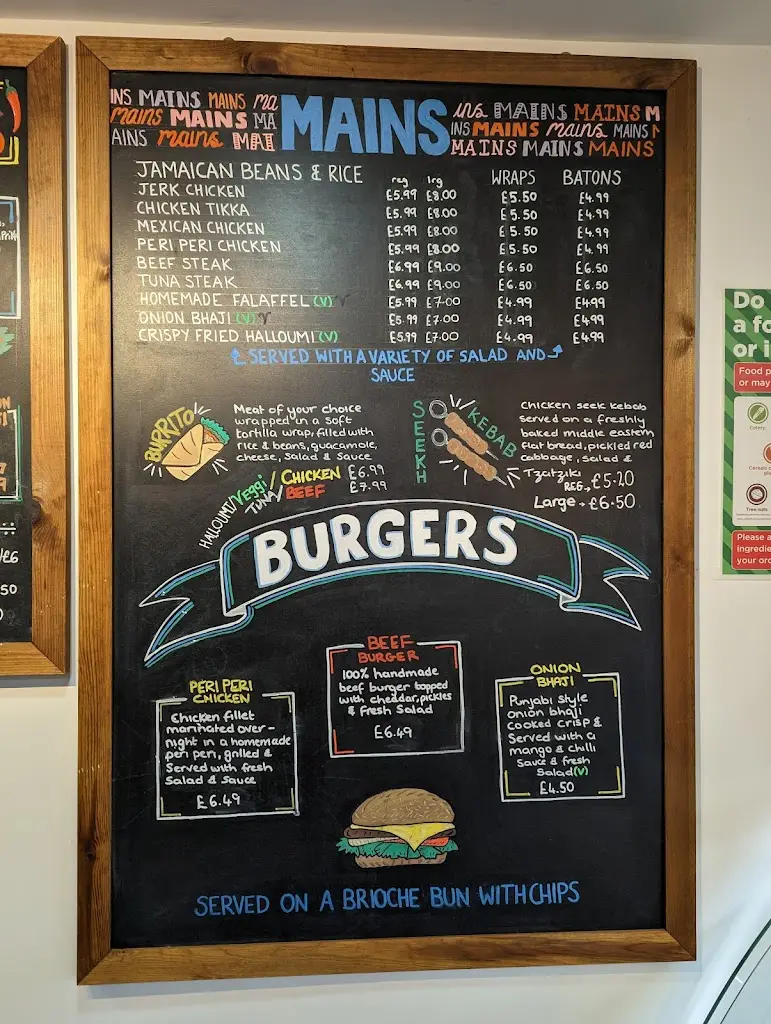 INS MAINS MAINS MA MAINS ins MAINS MAINS M
mains MAINS MA INS MAINS mains MAINS
AINS mains MAI MAINS MAINS MAINS
JAMAICAN BEANS & RICE reg lrg WRAPS BATONS
JERK CHICKEN £5.99 £8.00 £5.50 £4.99
CHICKEN TIKKA £5.99 £8.00 £5.50 £4.99
MEXICAN CHICKEN £5.99 £8.00 £5.50 £4.99
PERI PERI CHICKEN £5.99 £8.00 £5.50 £4.99
BEEF STEAK £6.99 £9.00 £6.50 £6.50
TUNA STEAK £6.99 £9.00 £6.50 £6.50
HOMEMADE FALAFFEL (V) V £5.99 £7.00 £4.99 £4.99
ONION BHAJI (V) V £5.99 £7.00 £4.99 £4.99
CRISPY FRIED HALLOUMI (V) £5.99 £7.00 £4.99 £4.99
SERVED WITH A VARIETY OF SALAD AND
SAUCE
BURRITO
Meat of your choice
wrapped in a soft
tortilla wrap, filled with
rice & beans, guacamole,
cheese, Salad & Sauce
HALLOUMI/Veggi/CHICKEN £6.99
TUNA/BEEF £7.99
SEEKH
KEBAB
Chicken seek kebab
served on a freshly
baked middle eastern
flat bread, pickled red
cabbage, salad &
Tzatziki
REG - £5.20
Large - £6.50
BURGERS
PERI PERI
CHICKEN
Chicken fillet
marinated over-
night in a homemade
peri peri, grilled &
Served with fresh
Salad & Sauce
£6.49
BEEF
BURGER
100% handmade
beef burger topped
with cheddar, pickles
& fresh Salad
£6.49
ONION
BHAJI
Punjabi style
onion bhaji
cooked crisp &
Served with a
mango & chilli
Sauce & fresh
Salad (V)
£4.50
SERVED ON A BRIOCHE BUN WITH CHIPS
Do
a fo
or i
Food p
or may
Celery
Tree nuts
Please a
ingredie
your ord